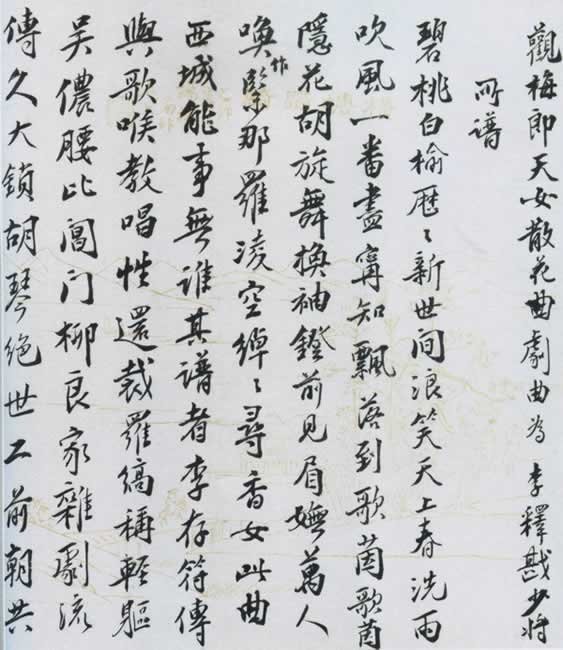 觀梅郎天女散花曲劇曲為 李釋戡少将
所谱
碧桃白榆歷〻新世间浪笑天上春洗雨
吹風一番盡甯知飄落到歌茵歌茵
隱花胡旋舞換袖鐙前見眉嫵萬人
喚作緊那羅淩空綽〻尋香女此曲
西城能事無谁其谱者李存符傳
與歌喉教唱性還裁羅縞稱輕軀
吴儂腰比閶门柳良家雜劇流
傳久大鎖胡琴絕世工前朝共